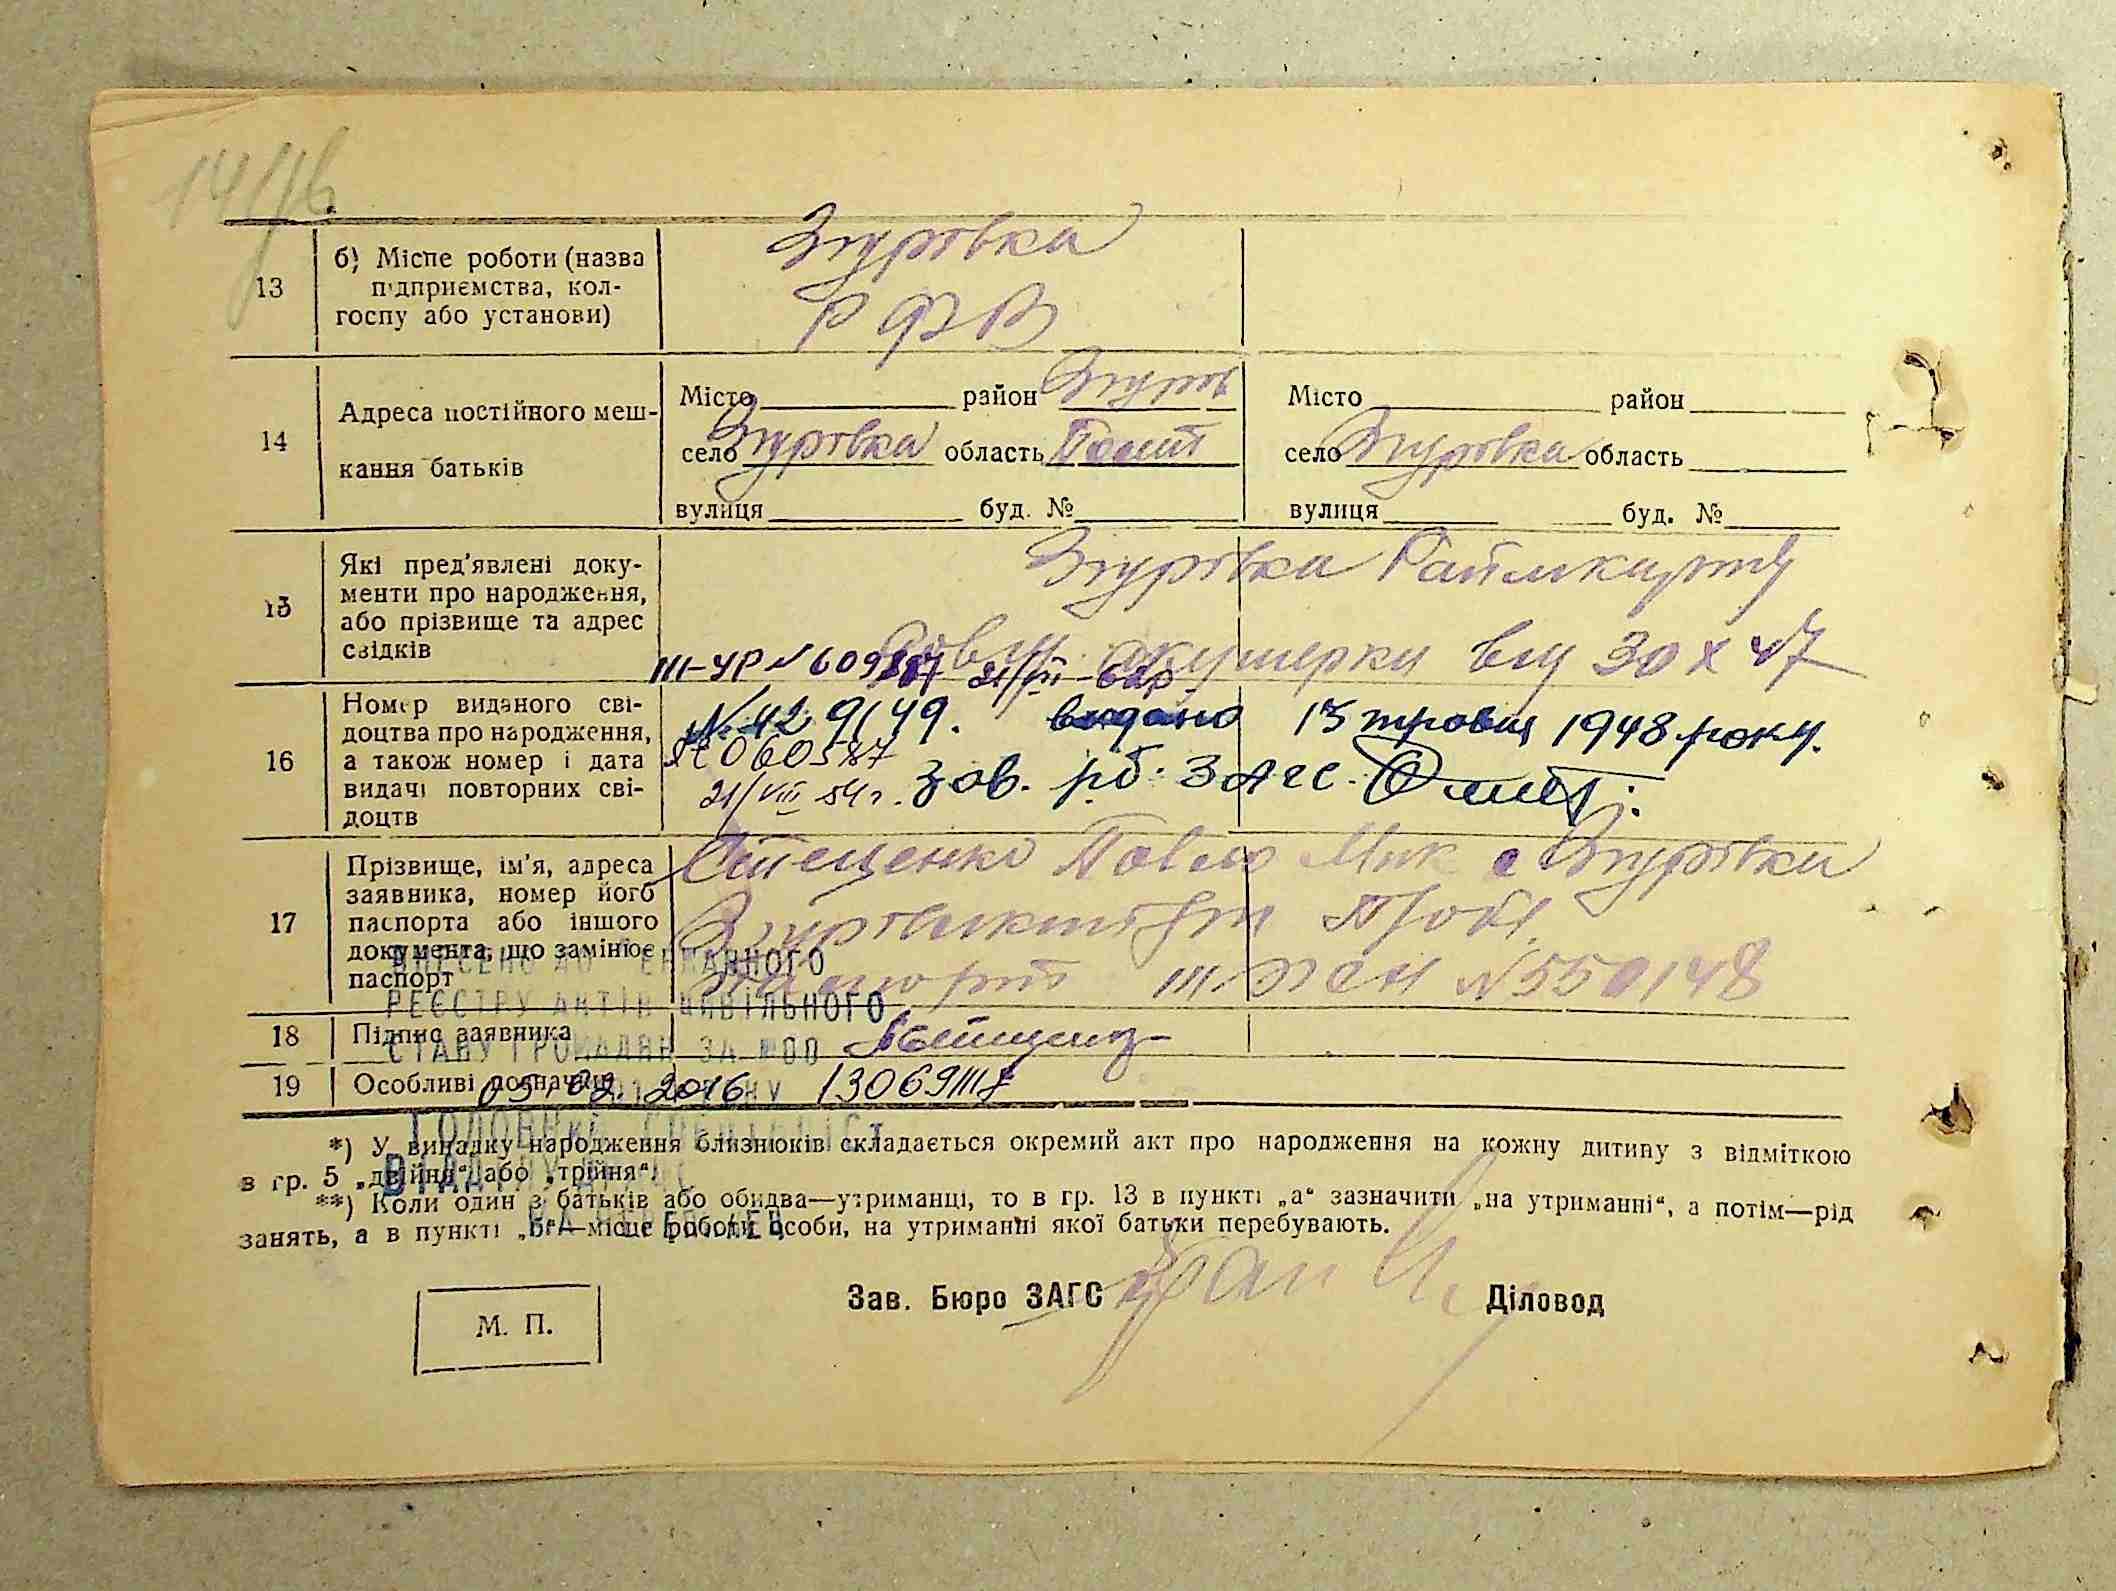 14/16
13
б) Місце роботи (назва
підприємства, кол-
госпу або установи)
Згурівка
РФВ
14
Адреса постійного меш-
кання батьків
Місто район Згурів
село Згурівка область Полт
вулиця буд. №
Місто район
село Згурівка область
вулиця буд. №
15
Які пред'явлені доку-
менти про народження,
або прізвище та адрес
свідків
Згурівка
акушерки 30 X 47
III-УР N 609
16
Номер виданого сві-
доцтва про народження,
а також номер і дата
видачі повторних сві-
доцтв
№ 429/49. видано 13 1948 року.
060587
21/VIII 54 г. зав. рб. ЗАГС.
17
Прізвище, ім'я, адреса
заявника, номер його
паспорта або іншого
документа, що замінює
паспорт
Стеценко Павло Мик с Згурівки
Паспорт N 550148
18
Підпис заявника
19
Особливі позначки
ВНЕСЕНО ДО ДЕРЖАВНОГО
РЕЄСТРУ АКТІВ ЦИВІЛЬНОГО
СТАНУ ГРОМАДЯН ЗА №00
05.02.2016 13069118
ГОЛОВНИЙ СПЕЦІАЛІСТ
ВІДДІЛУ ДРАЦС
*) У випадку народження близнюків складається окремий акт про народження на кожну дитину з відміткою
в гр. 5 „двійня“ або „трійня“.
**) Коли один з батьків або обидва—утриманці, то в гр. 13 в пункті „а“ зазначити „на утриманні“, а потім—рід
занять, а в пункті „б“—місце роботи особи, на утриманні якої батьки перебувають.
М. П.
Зав. Бюро ЗАГС
Діловод